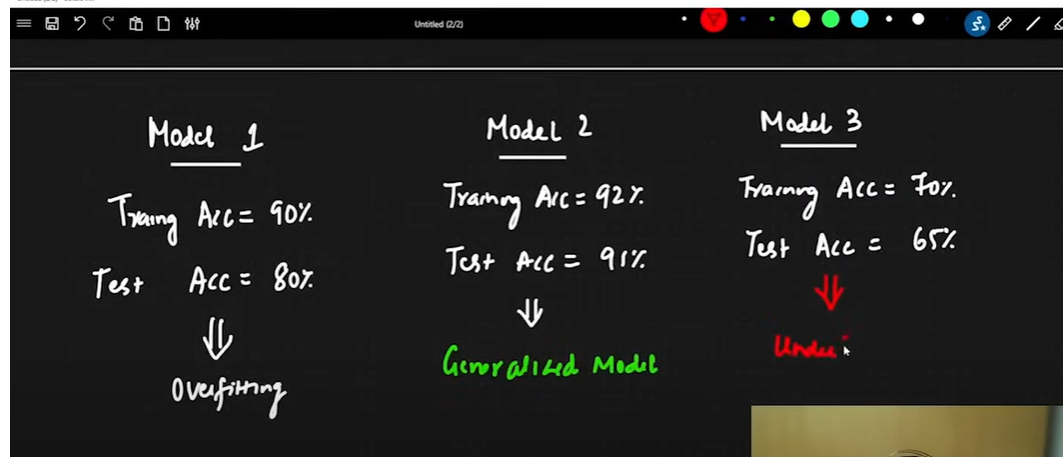 Untitled (2/2)
Model 1
Traing Acc = 90%
Test Acc = 80%
Overfitting
Model 2
Training Acc = 92%
Test Acc = 91%
Generalized Model
Model 3
Training Acc = 70%
Test Acc = 65%
Unde